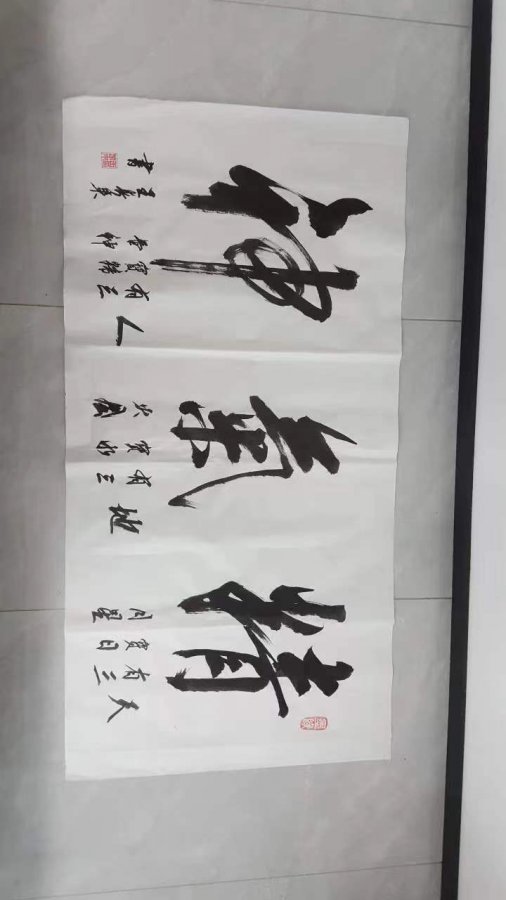 精氣神
天有三寶日月星
地有三寶水火風
人有三寶精氣神
王東書